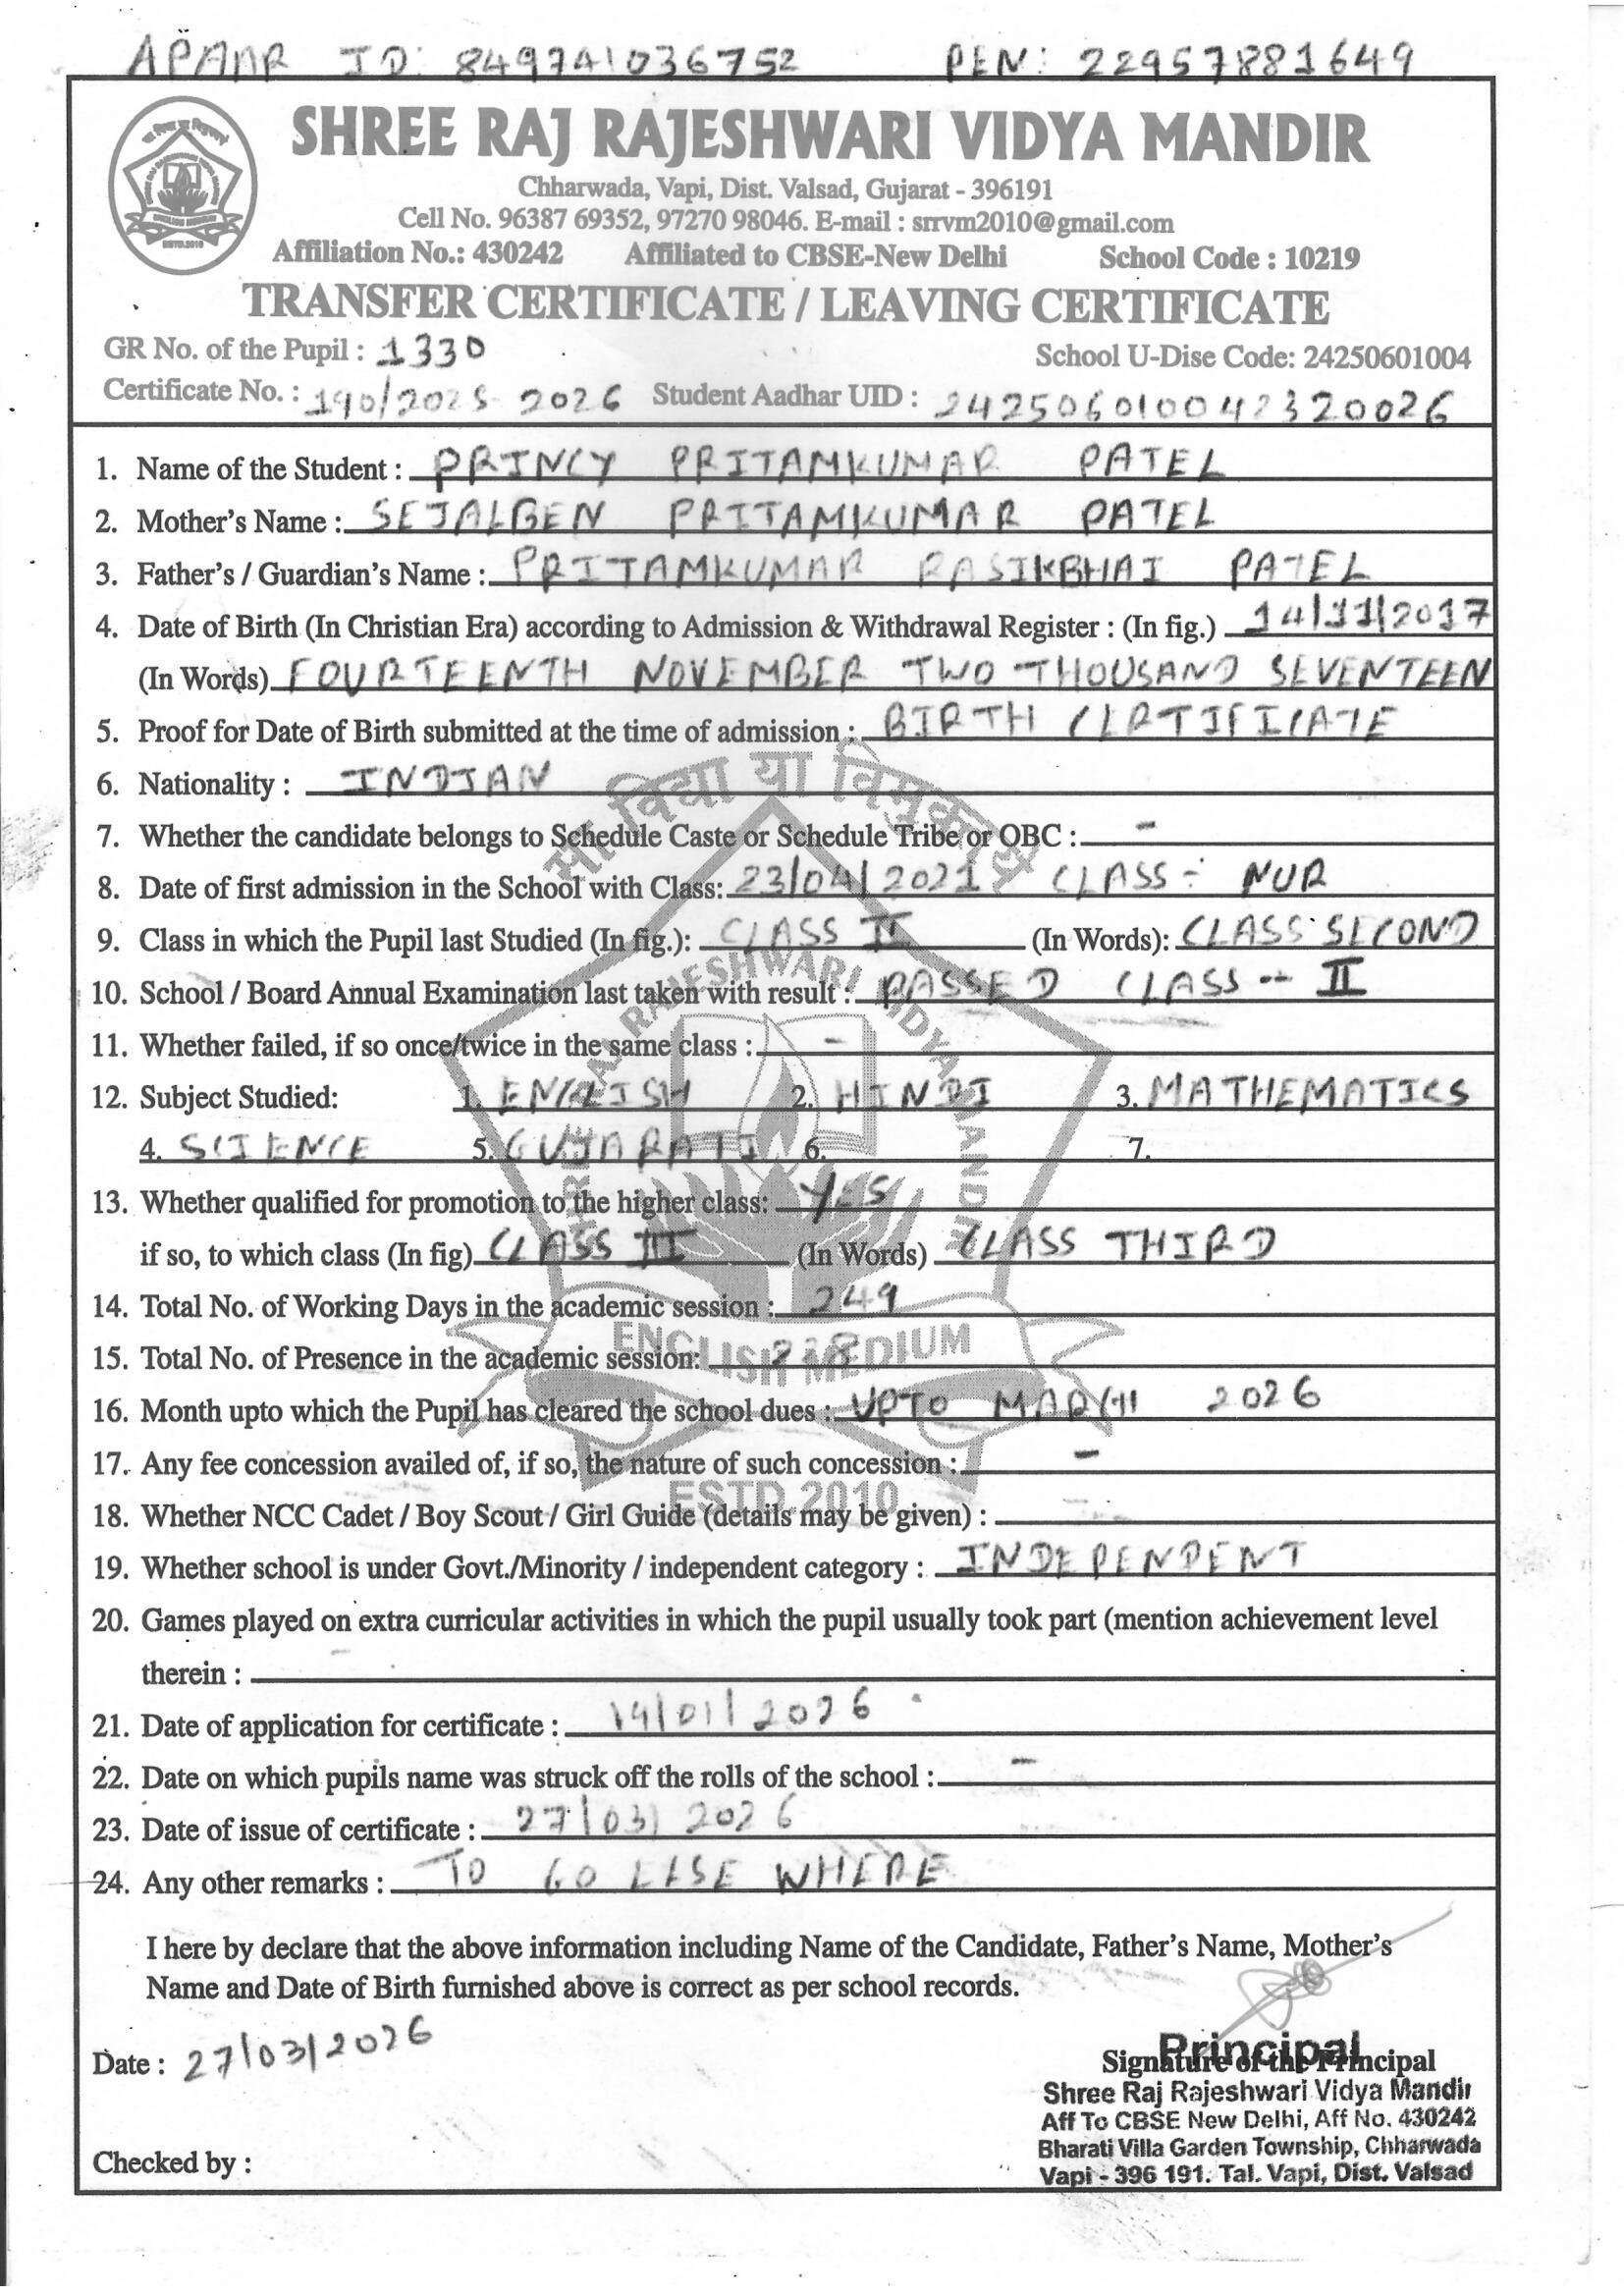 APAAR ID: 849741036752 PEN: 22957881649
SHREE RAJ RAJESHWARI VIDYA MANDIR
Chharwada, Vapi, Dist. Valsad, Gujarat - 396191
Cell No. 96387 69352, 97270 98046. E-mail : srrvm2010@gmail.com
Affiliation No.: 430242 Affiliated to CBSE-New Delhi School Code : 10219
TRANSFER CERTIFICATE / LEAVING CERTIFICATE
GR No. of the Pupil : 1330 School U-Dise Code: 24250601004
Certificate No. : 190/2025-2026 Student Aadhar UID : 242506010042320026
1. Name of the Student : PRINCY PRITAMKUMAR PATEL
2. Mother's Name : SEJALBEN PRITAMKUMAR PATEL
3. Father's / Guardian's Name : PRITAMKUMAR RASIKBHAI PATEL
4. Date of Birth (In Christian Era) according to Admission & Withdrawal Register : (In fig.) 14/11/2017
(In Words) FOURTEENTH NOVEMBER TWO THOUSAND SEVENTEEN
5. Proof for Date of Birth submitted at the time of admission : BIRTH CERTIFICATE
6. Nationality : INDIAN
सा विद्या या विमुक्तये
7. Whether the candidate belongs to Schedule Caste or Schedule Tribe or OBC : -
8. Date of first admission in the School with Class: 23/04/2021 CLASS - NUR
9. Class in which the Pupil last Studied (In fig.): CLASS II (In Words): CLASS SECOND
10. School / Board Annual Examination last taken with result : PASSED CLASS - II
11. Whether failed, if so once/twice in the same class : -
12. Subject Studied: 1. ENGLISH 2. HINDI 3. MATHEMATICS
4. SCIENCE 5. GUJARATI 6. 7.
SHREE RAJ RAJESHWARI VIDYA MANDIR
13. Whether qualified for promotion to the higher class: YES
if so, to which class (In fig) CLASS III (In Words) CLASS THIRD
14. Total No. of Working Days in the academic session : 249
ENGLISH MEDIUM
15. Total No. of Presence in the academic session:
16. Month upto which the Pupil has cleared the school dues : UPTO MARCH 2026
17. Any fee concession availed of, if so, the nature of such concession : -
ESTD.2010
18. Whether NCC Cadet / Boy Scout / Girl Guide (details may be given) : -
19. Whether school is under Govt./Minority / independent category : INDEPENDENT
20. Games played on extra curricular activities in which the pupil usually took part (mention achievement level
therein : -
21. Date of application for certificate : 14/01/2026
22. Date on which pupils name was struck off the rolls of the school : -
23. Date of issue of certificate : 27/03/2026
24. Any other remarks : TO GO ELSE WHERE
I here by declare that the above information including Name of the Candidate, Father's Name, Mother's
Name and Date of Birth furnished above is correct as per school records.
Date : 27/03/2026
Principal
Signature of the Principal
Shree Raj Rajeshwari Vidya Mandir
Aff To CBSE New Delhi, Aff No. 430242
Bharati Villa Garden Township, Chharwada
Vapi - 396 191. Tal. Vapi, Dist. Valsad
Checked by :